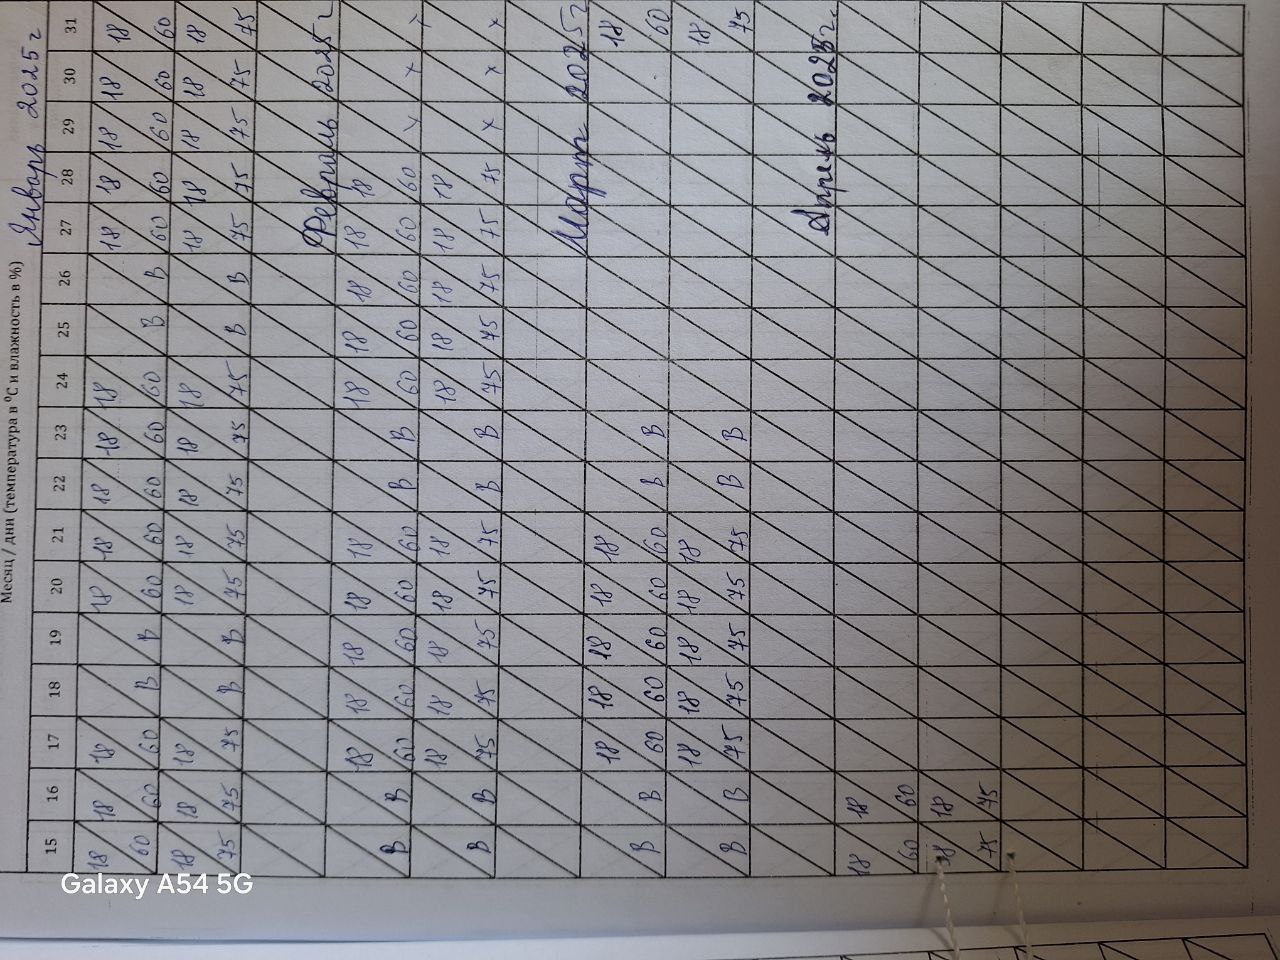 Январь 2025 г
Месяц / дни (температура в °С и влажность в %)
15 16 17 18 19 20 21 22 23 24 25 26 27 28 29 30 31
18 18 18 18 18 18 18 18 18 18 18 18 18
60 60 60 В В 60 60 60 60 60 В В 60 60 60 60 60
18 18 18 18 18 18 18 18 18 18 18 18 18
75 75 75 В В 75 75 75 75 75 В В 75 75 75 75 75
Февраль 2025 г
18 18 18 18 18 18 18 18 18 18
В В 60 60 60 60 60 В В 60 60 60 60 60 х х х
18 18 18 18 18 18 18 18 18 18
В В 75 75 75 75 75 В В 75 75 75 75 75 х х х
Март 2025 г
18 18 18 18 18 18
В В 60 60 60 60 60 В В 60
18 18 18 18 18 18
В В 75 75 75 75 75 В В 75
Апрель 2025 г.
18 18
60 60
18 18
75 75
Galaxy A54 5G